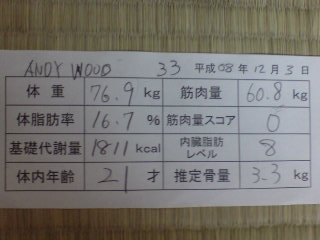 ANDY WOOD 33 平成08年12月3日
体重 76.9 kg 筋肉量 60.8 kg
体脂肪率 16.7 % 筋肉量スコア 0
基礎代謝量 1811 kcal 内臓脂肪レベル 8
体内年齢 21 才 推定骨量 3.3 kg